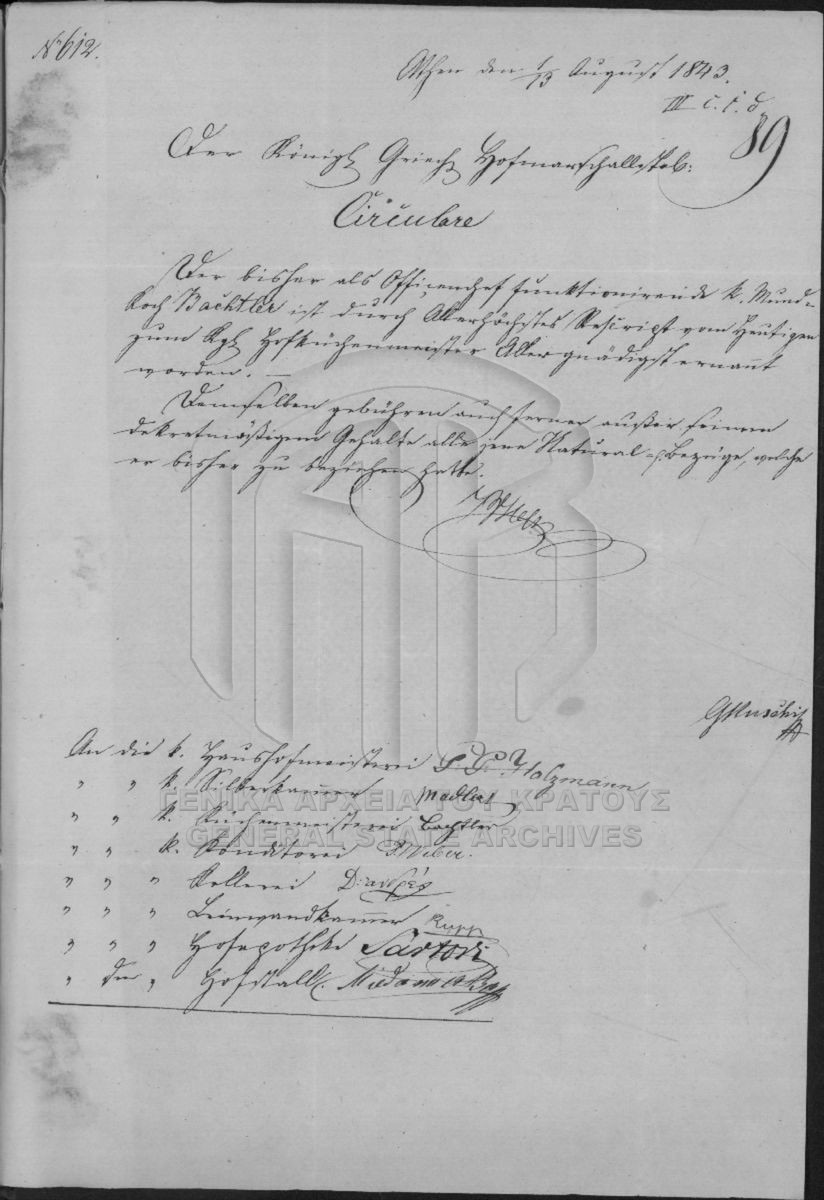 № 612.
Athen den 1/13 August 1843.
III c. f. d
89
Der Königl Griech Hofmarschallstab:
Circulare
Der bisher als Officenchef funktionirende k. Mund=
koch Bachtler ist durch Allerhöchstes Rescript vom Heutigen
zum Kgl Hofküchenmeister Allergnädigst ernannt
worden. —
Demselben gebühren auch ferner außer seinem
dekretmäßigem Gehalte alle jene Natural-Bezüge, welche
er bisher zu beziehen hatte.
An die k. Haushofmeisterei Holzmann
" " k. Silberkammer
" " k. Küchenmeisterei Bachtler
" " k. Konditorei Weber.
" " " Kellerei
" " " Leinwandkammer Rupp
" " " Hofapotheke Sartori
" den " Hofstall
ΓΕΝΙΚΑ ΑΡΧΕΙΑ ΤΟΥ ΚΡΑΤΟΥΣ
GENERAL STATE ARCHIVES